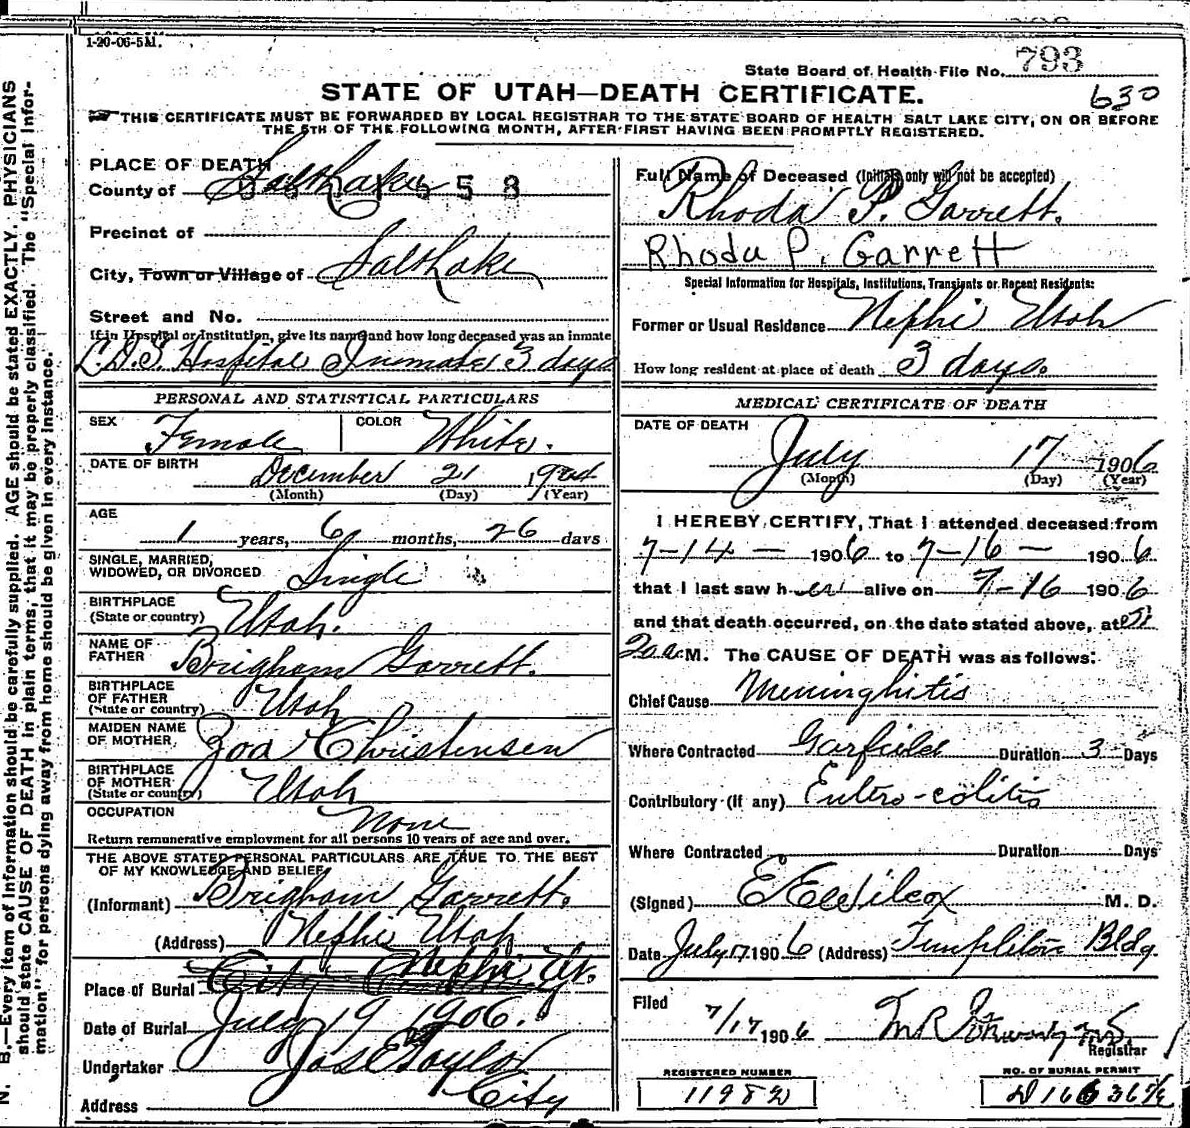 1-20-06-5M.
State Board of Health File No. 793
630
STATE OF UTAH—DEATH CERTIFICATE.
THIS CERTIFICATE MUST BE FORWARDED BY LOCAL REGISTRAR TO THE STATE BOARD OF HEALTH SALT LAKE CITY, ON OR BEFORE
THE 5TH OF THE FOLLOWING MONTH, AFTER FIRST HAVING BEEN PROMPTLY REGISTERED.
N. B.—Every item of information should be carefully supplied. AGE should be stated EXACTLY. PHYSICIANS
should state CAUSE OF DEATH in plain terms, that it may be properly classified. The "Special Infor-
mation" for persons dying away from home should be given in every instance.
PLACE OF DEATH
County of Salt Lake 58
Precinct of
City, Town or Village of Salt Lake
Street and No.
If in Hospital or Institution, give its name and how long deceased was an inmate
L.D.S. Hospital Inmate 3 days
PERSONAL AND STATISTICAL PARTICULARS
SEX Female COLOR White.
DATE OF BIRTH December 21 1904
(Month) (Day) (Year)
AGE 1 years, 6 months, 26 days
SINGLE, MARRIED,
WIDOWED, OR DIVORCED Single
BIRTHPLACE
(State or country) Utah.
NAME OF
FATHER Brigham Garrett.
BIRTHPLACE
OF FATHER
(State or country) Utah
MAIDEN NAME
OF MOTHER Zoa Christensen
BIRTHPLACE
OF MOTHER
(State or country) Utah
OCCUPATION None
Return remunerative employment for all persons 10 years of age and over.
THE ABOVE STATED PERSONAL PARTICULARS ARE TRUE TO THE BEST
OF MY KNOWLEDGE AND BELIEF
(Informant) Brigham Garrett.
(Address) Nephi Utah
Place of Burial City Nephi Ut.
Date of Burial July 19 1906.
Undertaker Jos E Taylor
Address City
Full Name of Deceased (Initials only will not be accepted)
Rhoda P. Garrett.
Rhoda P. Garrett
Special Information for Hospitals, Institutions, Transients or Recent Residents:
Former or Usual Residence Nephi Utah
How long resident at place of death 3 days.
MEDICAL CERTIFICATE OF DEATH
DATE OF DEATH
July 17 1906
(Month) (Day) (Year)
I HEREBY CERTIFY, That I attended deceased from
7-14- 1906 to 7-16- 1906
that I last saw her alive on 7-16 1906
and that death occurred, on the date stated above, at
M. The CAUSE OF DEATH was as follows:
Chief Cause Meninghitis
Where Contracted Garfield Duration 3 Days
Contributory (if any) Entero-colitis
Where Contracted Duration Days
(Signed) E E Wilcox M. D.
Date July 17 1906 (Address) Templeton Bldg
Filed 7/17 1906
Registrar
REGISTERED NUMBER
11982
NO. OF BURIAL PERMIT